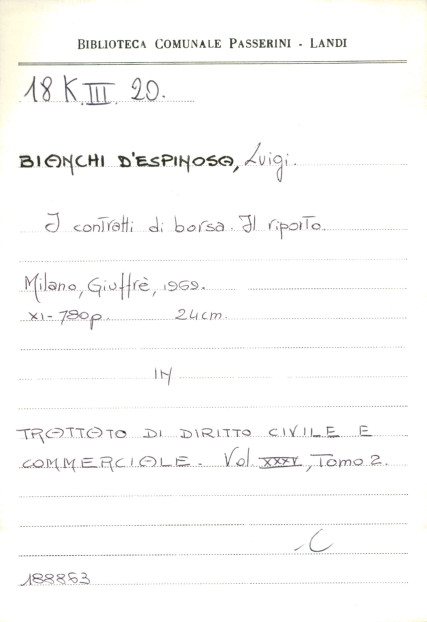 BIBLIOTECA COMUNALE PASSERINI - LANDI
18 K III 20.
BIANCHI D'ESPINOSA, Luigi.
I contratti di borsa. Il riporto.
Milano, Giuffrè, 1969.
XI-780p. 24cm.
IN
TRATTATO DI DIRITTO CIVILE E
COMMERCIALE. Vol. XXXV, Tomo 2.
188863